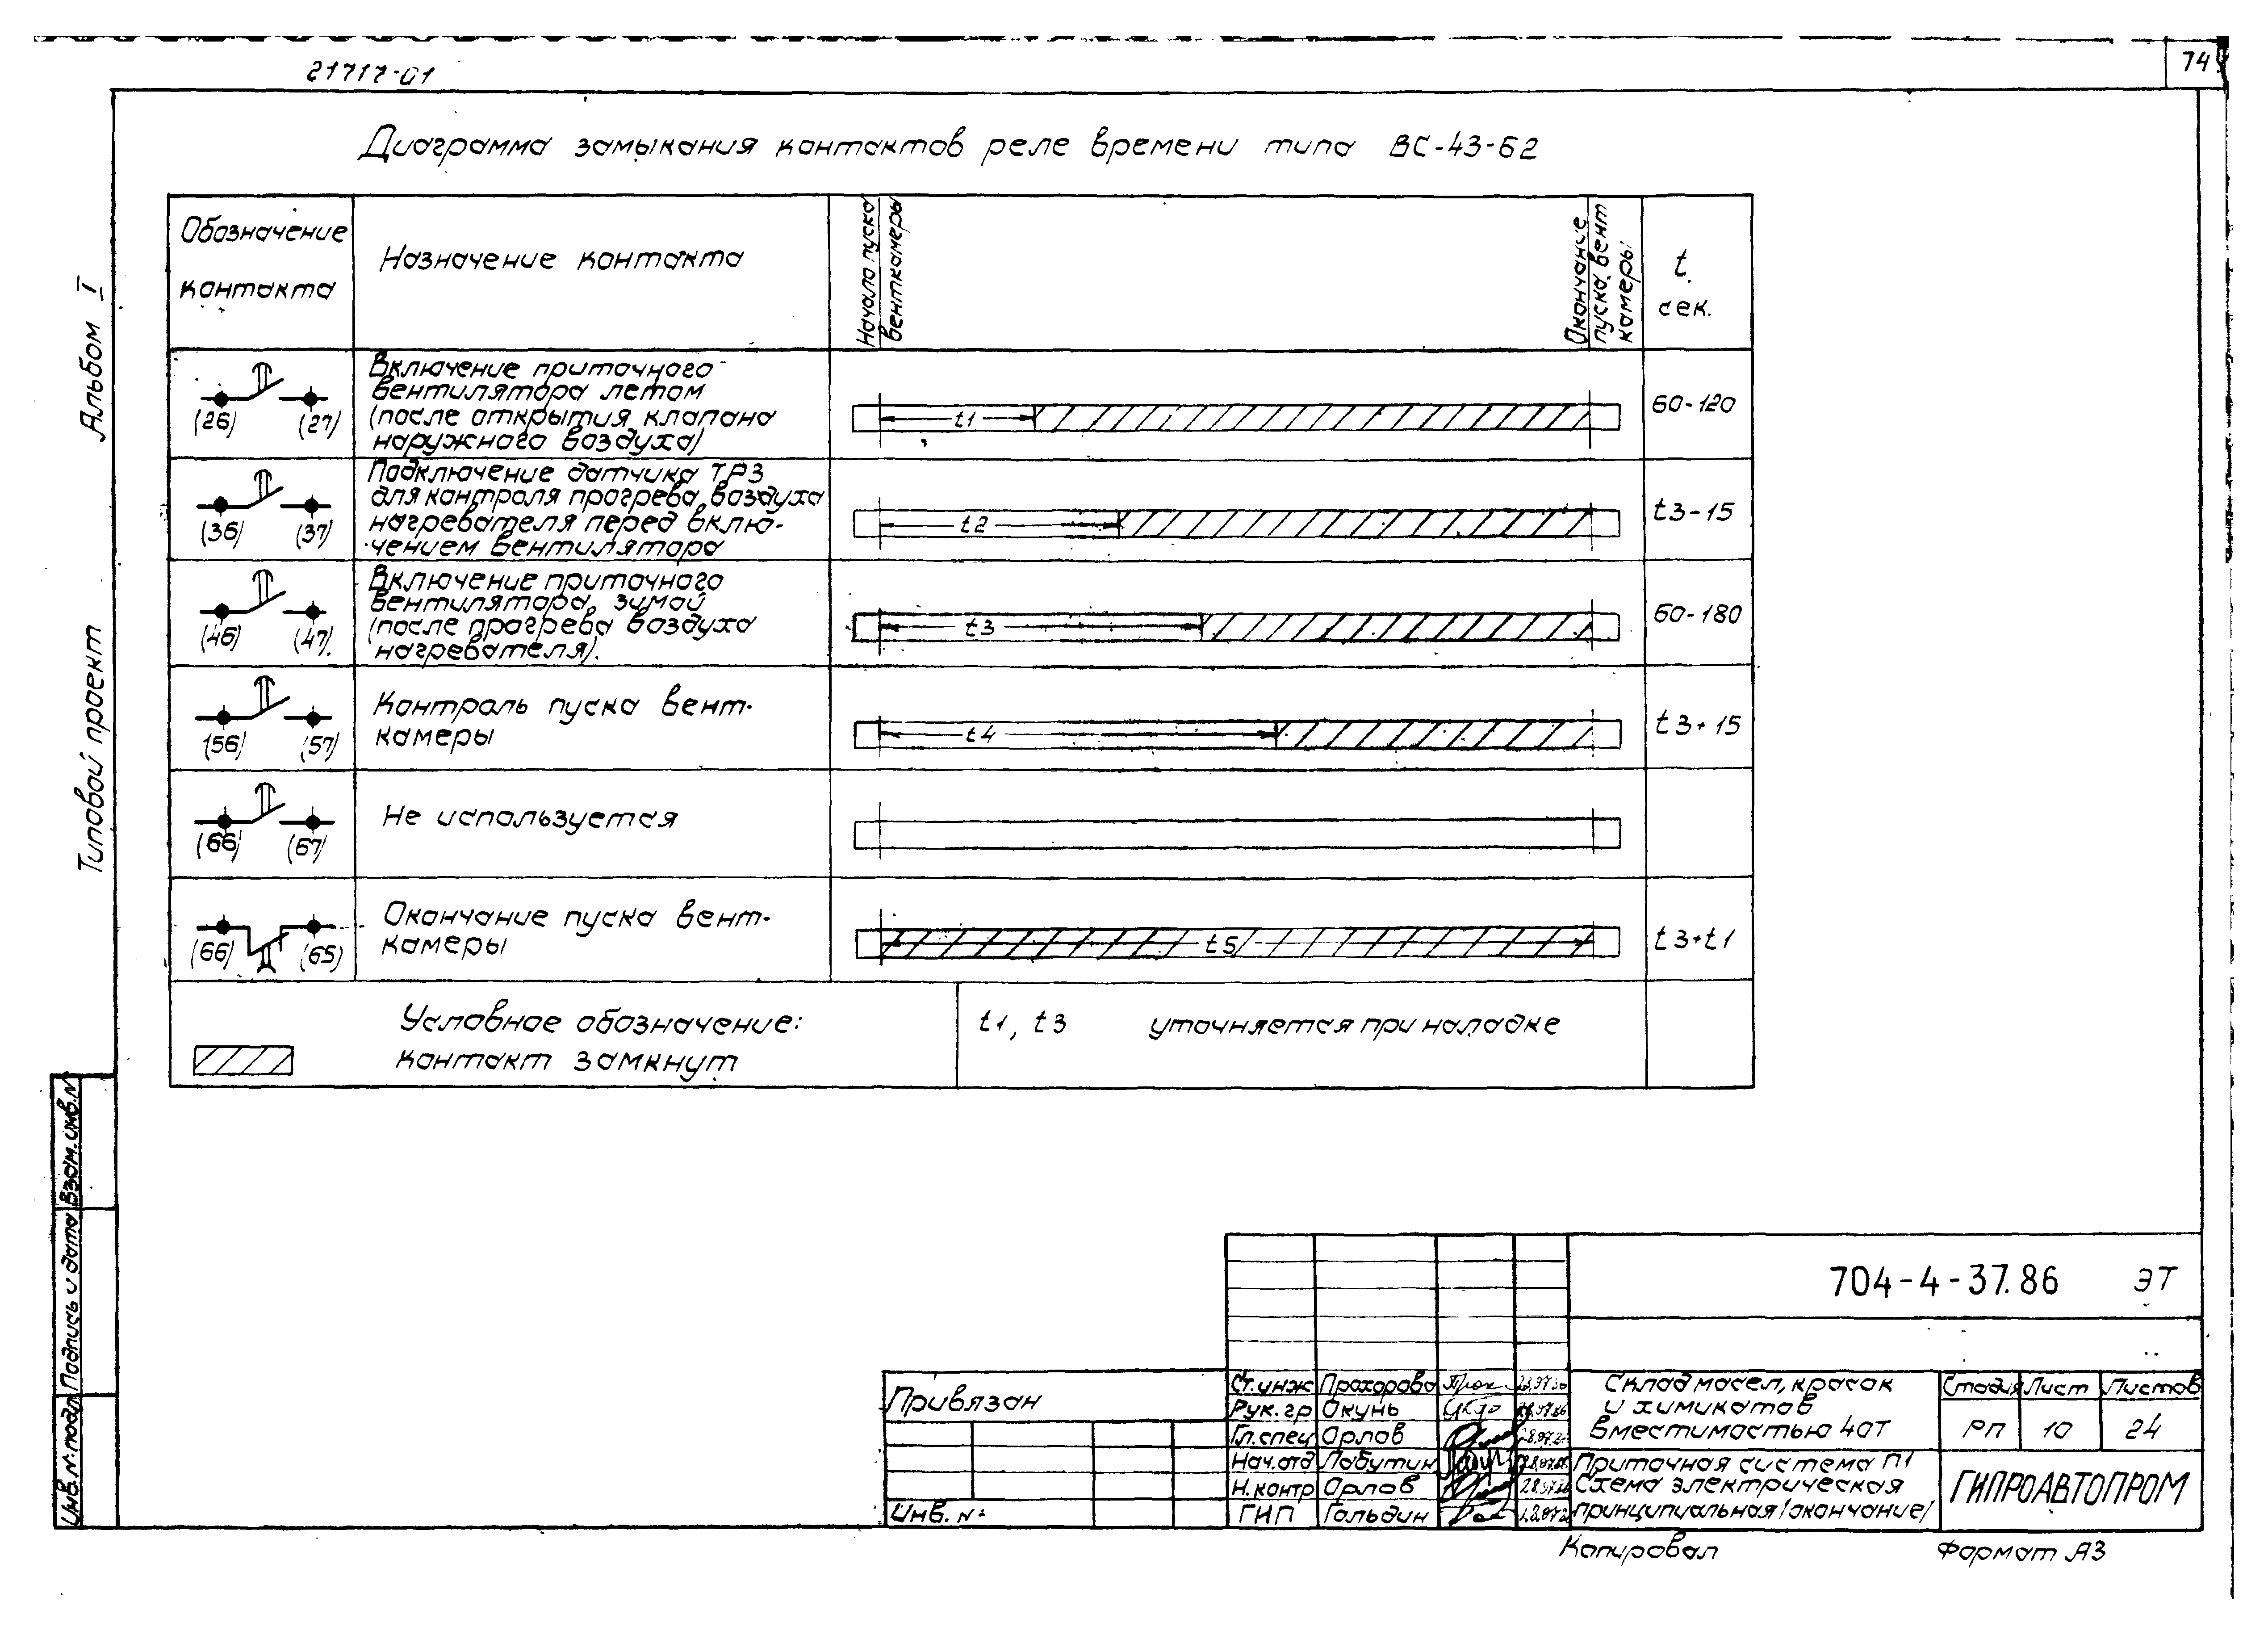 21717-01
74
Диаграмма замыкания контактов реле времени типа ВС-43-62
Альбом I
Типовой проект
Обозначение
контакта
Назначение контакта
Начало пуска
венткамеры
Окончание
пуска вент
камеры
t
сек.
(26) (27)
Включение приточного
вентилятора летом
(после открытия клапана
наружного воздуха)
t1
60-120
(36) (37)
Подключение датчика ТР3
для контроля прогрева воздуха
нагревателя перед вклю-
чением вентилятора
t2
t3-15
(46) (47)
Включение приточного
вентилятора зимой
(после прогрева воздуха
нагревателя).
t3
60-180
(56) (57)
Контроль пуска вент-
камеры
t4
t3+15
(66) (67)
Не используется
(66) (65)
Окончание пуска вент-
камеры
t5
t3+t1
Условное обозначение:
контакт замкнут
t1, t3 уточняется при наладке
Взам. инв. N
Подпись и дата
Инв. N: подл.
704-4-37.86 ЭТ
Привязан
Инв. N:
Ст. инж Прохорова
Рук. гр Окунь
Гл. спец Орлов
Нач. отд Лабутин
Н. контр Орлов
ГИП Гольдин
Склад масел, красок
и химикатов
вместимостью 40т
Стадия Лист Листов
РП 10 24
Приточная система П1
Схема электрическая
принципиальная /окончание/
ГИПРОАВТОПРОМ
Копировал
Формат А3